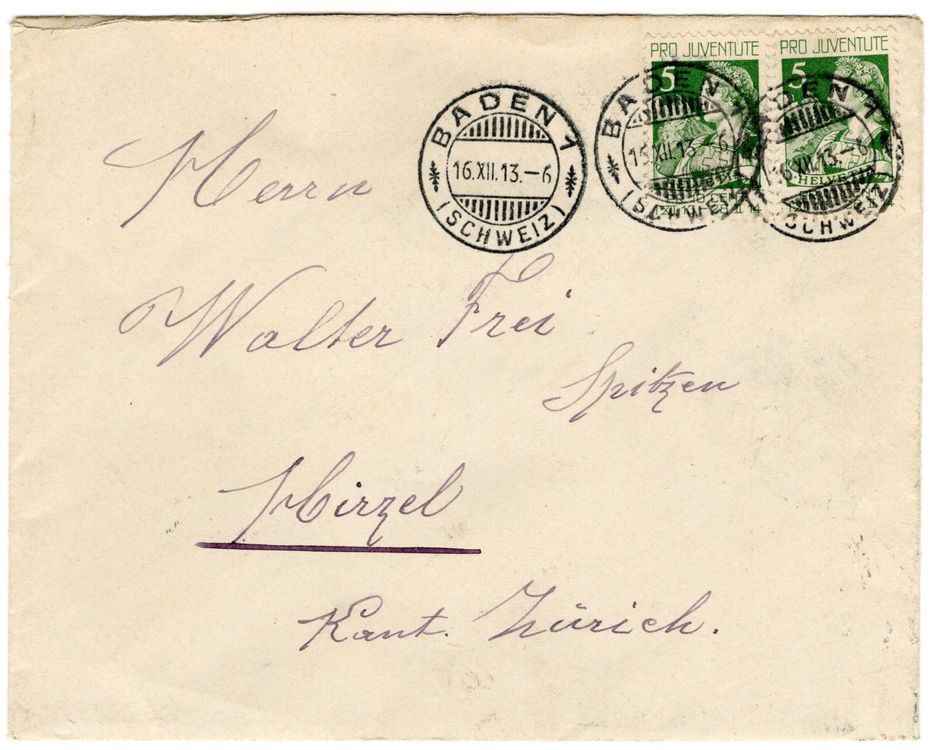 PRO JUVENTUTE PRO JUVENTUTE
5 5
BADEN 1 BADEN 1 BADEN 1
16.XII.13.-6 16.XII.13.-6 16.XII.13.-6
HELVETIA
(SCHWEIZ) (SCHWEIZ) (SCHWEIZ)
Herrn
Walter Frei
Spitzen
Hirzel
Kant. Zürich.